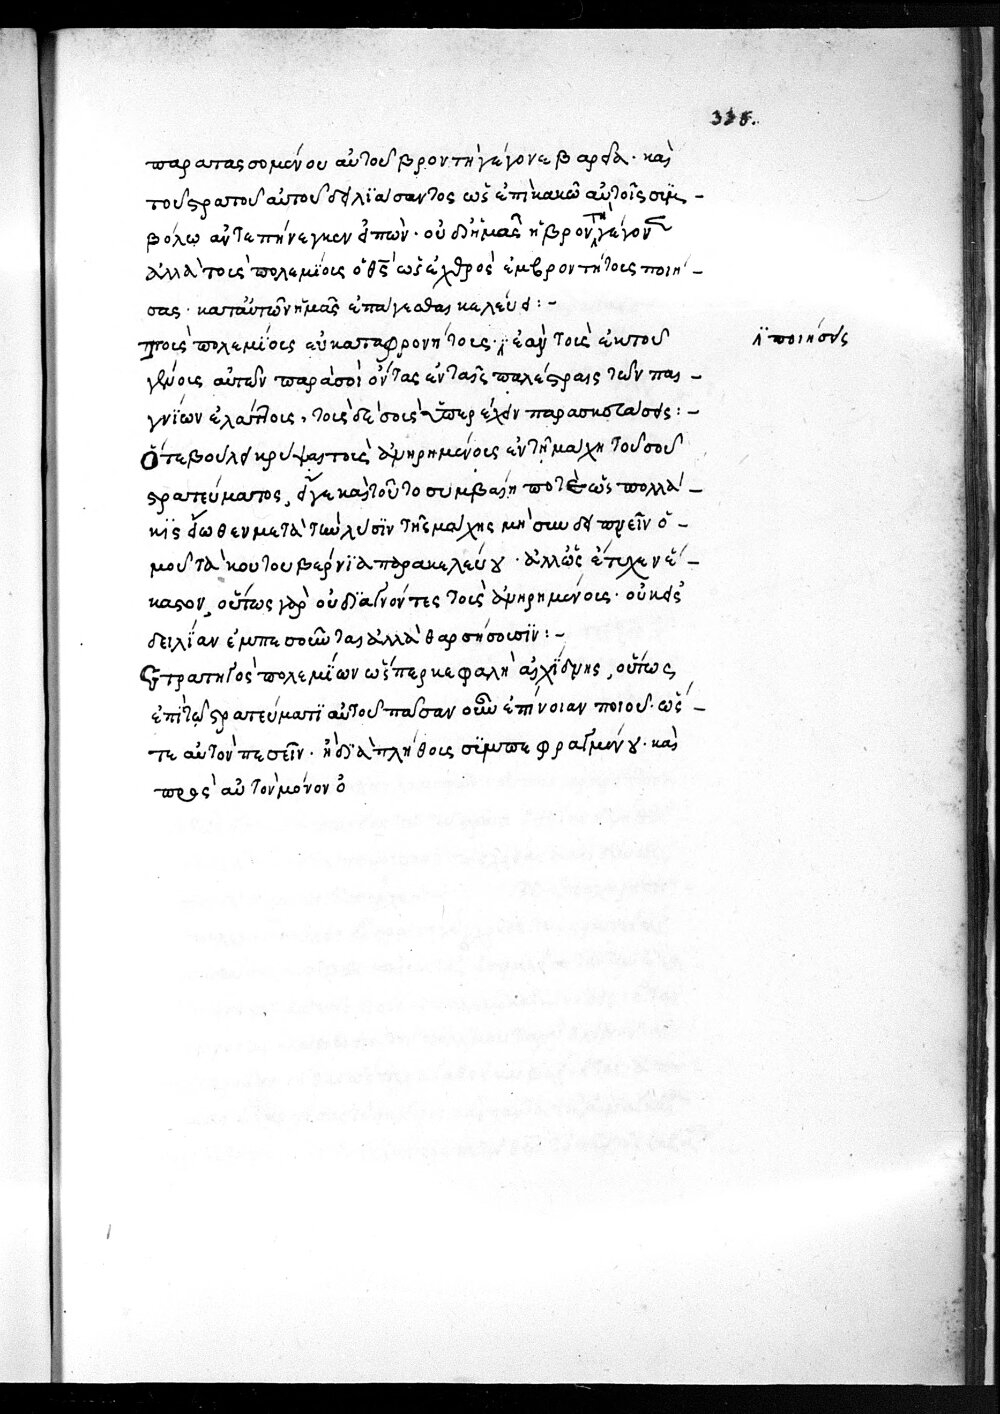 335.
παρατασσομένου αὐτοῦ βροντὴ γέγονε βαρεῖα· καὶ
τοῦ στρατοῦ αὐτοῦ δειλιάσαντος ὡς ἐπὶ κακῶ αὐτοῖς συμ-
βόλω ἀντεπήνεγκεν εἰπὼν· οὐ δι' ἡμᾶς ἡ βροντὴ γέγονεν
ἀλλὰ τοῖς πολεμίοις ὁ θς ὡς ἐχθροὺς ἐμβροντήτους ποιή-
σας· κατ' αὐτῶν ἡμᾶς ἐπάγεσθαι κελεύει:-
τοὺς πολεμίους εὐκαταφρονήτους· ἐὰν τοὺς ἐκ τοῦ
γένους αὐτῶν παρὰ σοὶ ὄντας ἐν ταῖς παλαίστραις τῶν παι-
γνίων ἐλάττους, τοὺς δὲ σοὺς ὑπερέχειν παρασκευάσεις:-
ποιήσεις
Ὅτε βούλει κρύψαι τοὺς ἀνῃρημένους ἐν τῇ μάχῃ τοῦ σοῦ
στρατεύματος, εἴγε καὶ τοῦτο συμβαίη ποτὲ ὡς πολλά-
κις εἴωθεν μετὰ τὴν λύσιν τῆς μάχης μὴ συνδειπνεῖν ὁ-
μοῦ τὰ κουτουβέρνια παρακελεύου· ἀλλ' ὡς ἔτυχεν ἕ-
καστον, οὕτως γὰρ οὐ διαγνόντες τοὺς ἀνῃρημένους· οὐκ εἰς
δειλίαν ἐμπεσοῦνται ἀλλὰ θαρσήσουσιν:-
Στρατηγὸς πολεμίων ὥσπερ κεφαλὴ ἀχίδνης, οὕτως
ἐπὶ τῶ στρατεύματι αὐτοῦ πᾶσαν οὖν ἐπίνοιαν ποιοῦ· ὥσ-
τε αὐτὸν πεσεῖν· ἢ διὰ πλήθους συμπεφραγμένου· καὶ
πρὸς αὐτὸν μόνον ὁ